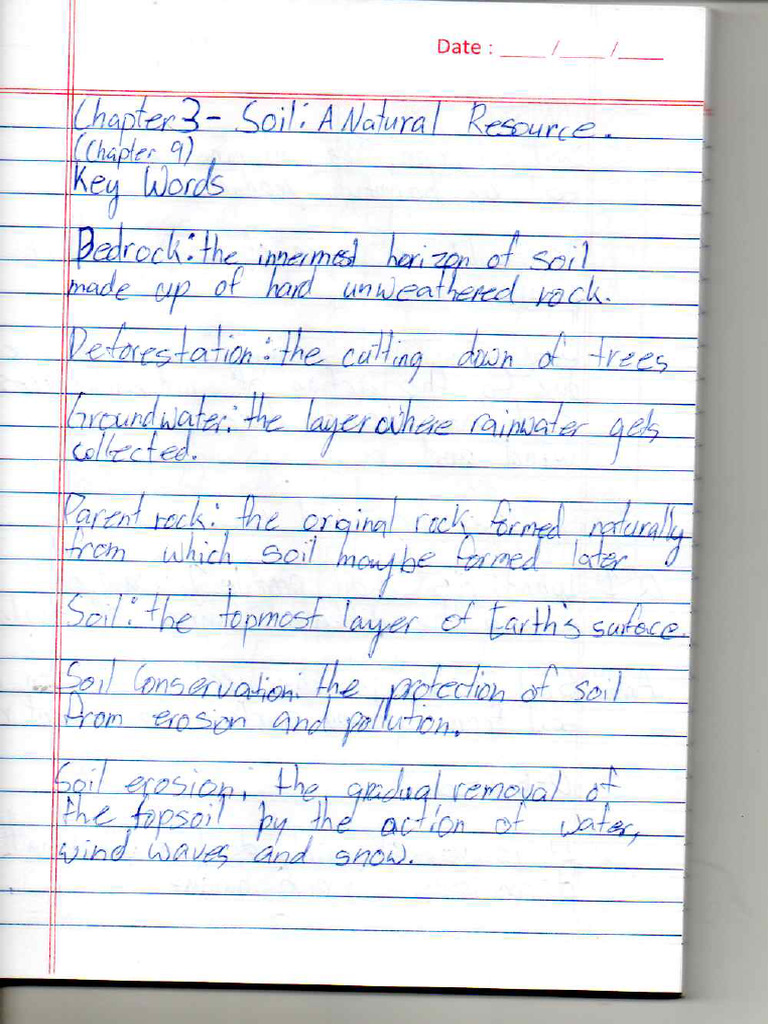 Date : ____ /____ /____
Chapter 3 - Soil: A Natural Resource.
(Chapter 9)
Key Words
Bedrock: the innermost horizon of soil
made up of hard unweathered rock.
Deforestation: the cutting down of trees
Groundwater: the layer where rainwater gets
collected.
Parent rock: the original rock formed naturally
from which soil maybe formed later
Soil: the topmost layer of Earth's surface.
Soil Conservation: the protection of soil
from erosion and pollution.
Soil erosion: the gradual removal of
the topsoil by the action of water,
wind waves and snow.